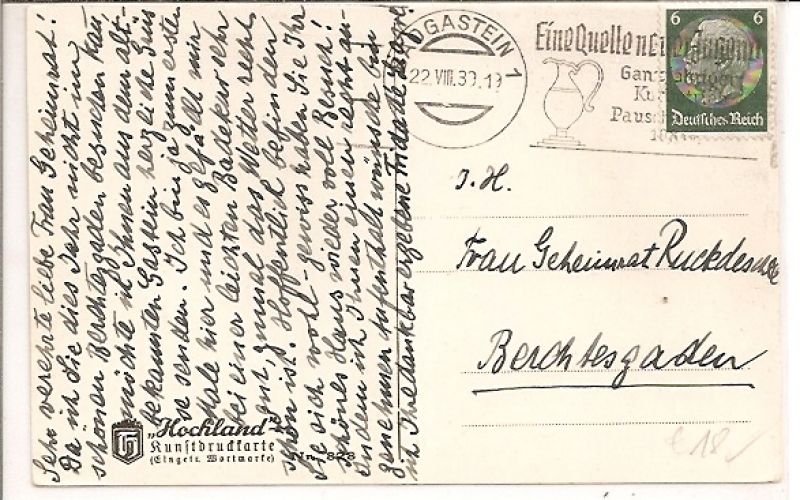 Sehr verehrte liebe Frau Geheimrat!
Da ich Sie dies Jahr nicht im
schönen Berchtesgaden besuchen kan̄,
möchte ich Ihnen aus dem alt-
bekannten Gastein herzliche Grüs
se senden. Ich bin ja zum ersten
Male hier und es gefällt mir
bei einer leichten Badekur sehr
gut, zumal das Wetter recht
schön ist. Hoffentlich befinden
Sie sich wohl - gewiss haben Sie Ihr
schönes Haus wieder voll Besuch!
Indem ich Ihnen einen recht an-
genehmen Aufenthalt wünsche bin
ich Ihre dankbar ergebene Frida
"Hochland"
Kunstdruckkarte
(Eingetr. Wortmarke)
Nr. 828
BADGASTEIN 1
22.VIII.39.19
Eine Quelle neuer Jugend
Ganzjährige
Kur
Pausch
6 6
Deutsches Reich
I. H.
Frau Geheimrat Ruckdeschel
Berchtesgaden
€18,-